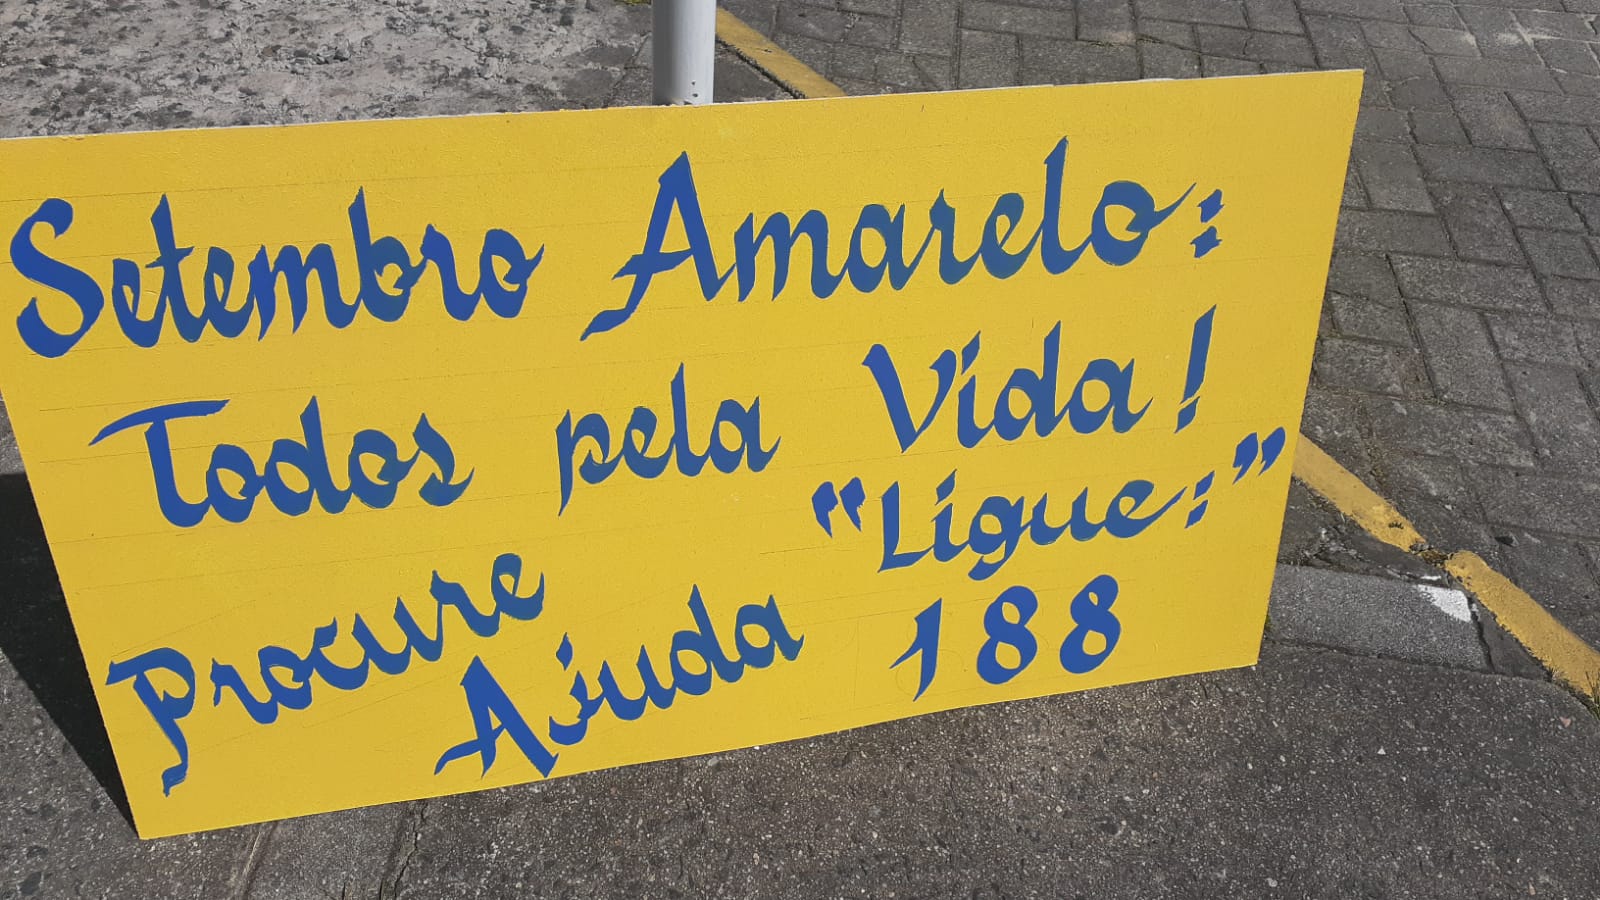 Setembro Amarelo:
Todos pela Vida!
Procure "Ligue:"
Ajuda 188